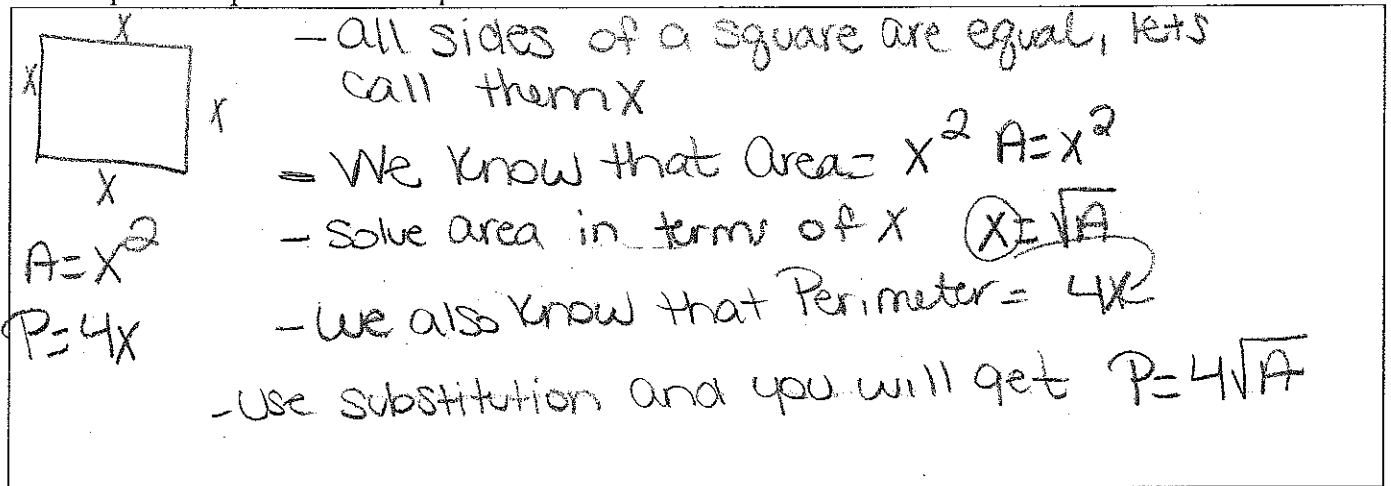 X
- all sides of a square are equal, lets
X
call them X
X
= We know that Area = X² A=X²
X
- Solve area in terms of X X=√A
A=X²
- We also know that Perimeter = 4X
P=4X
- Use substitution and you will get P=4√A